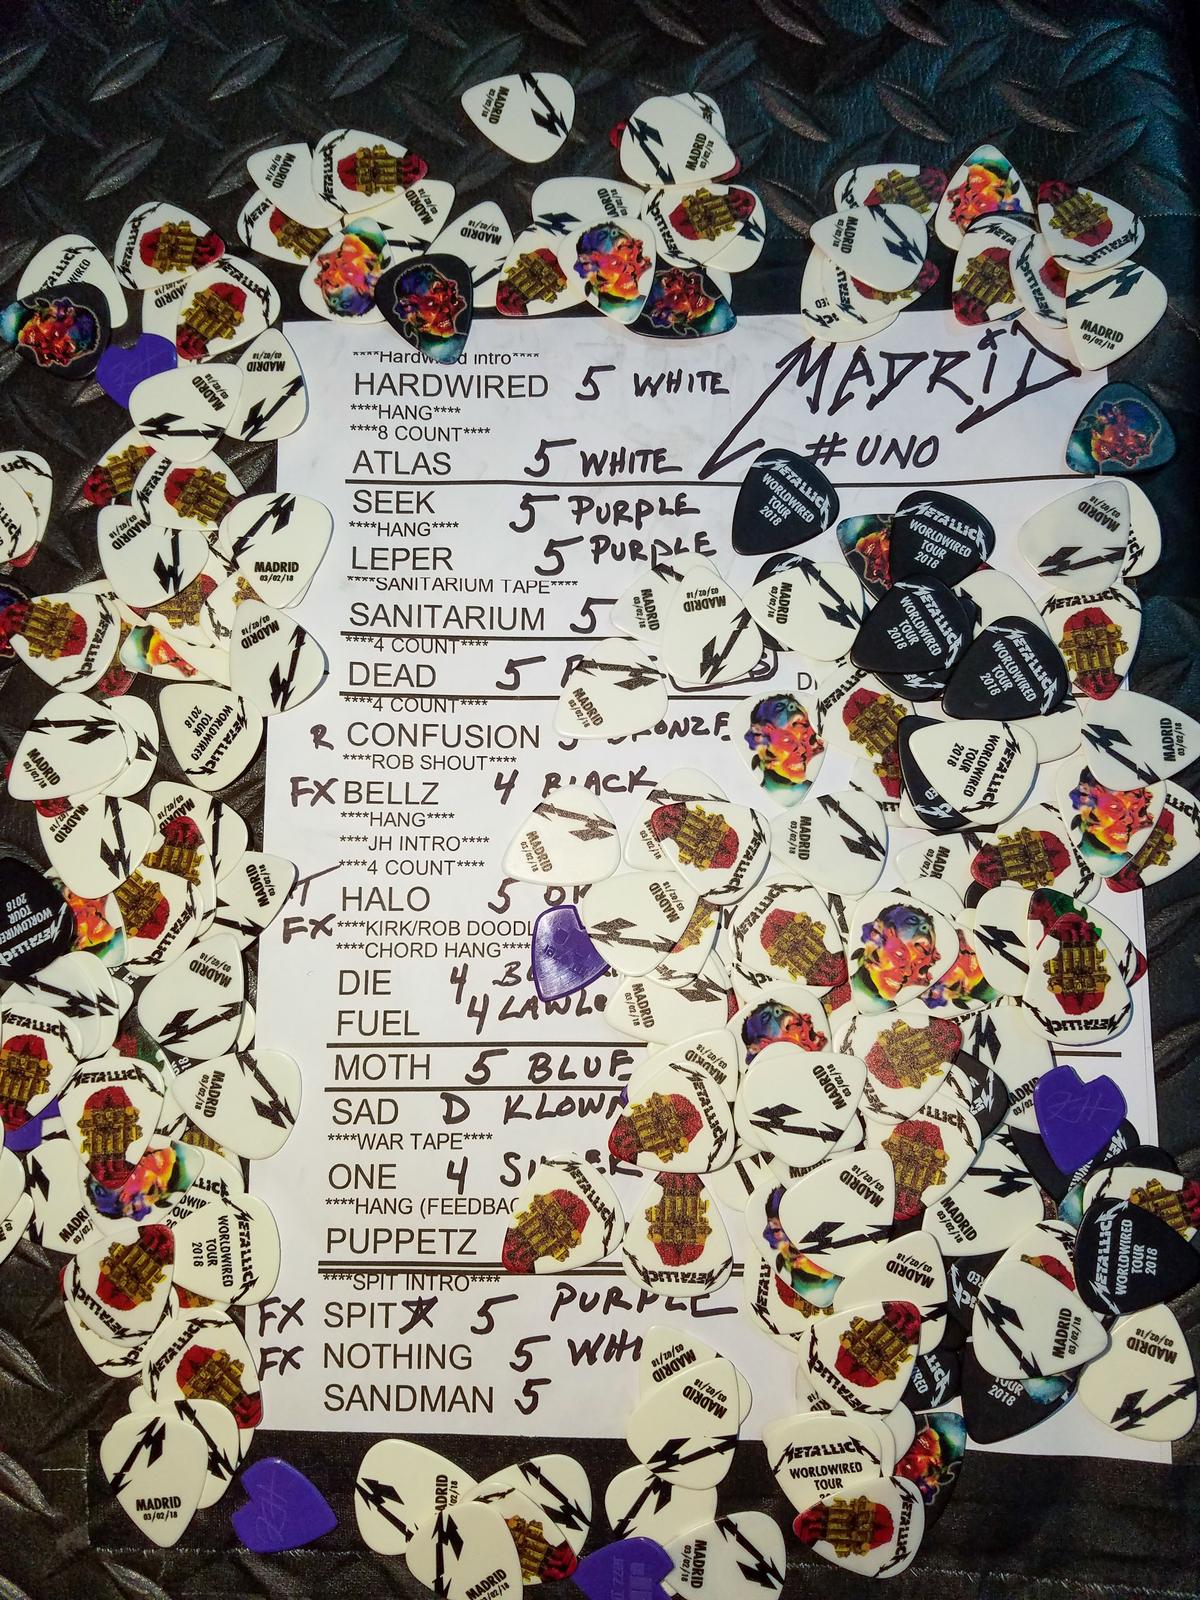 ****Hardwired intro****
HARDWIRED 5 WHITE
MADRID
****HANG****
****8 COUNT****
#UNO
ATLAS 5 WHITE
SEEK 5 PURPLE
****HANG****
LEPER 5 PURPLE
****SANITARIUM TAPE****
SANITARIUM 5
****4 COUNT****
DEAD 5
****4 COUNT****
R CONFUSION 5 BRONZE
****ROB SHOUT****
FX BELLZ 4 BLACK
****HANG****
****JH INTRO****
****4 COUNT****
HALO 5
FX ****KIRK/ROB DOODL
****CHORD HANG****
DIE 4
FUEL 4
MOTH 5 BLUE
SAD D KLOWN
****WAR TAPE****
ONE 4
****HANG (FEEDBAC
PUPPETZ
****SPIT INTRO****
FX SPIT 5 PURPLE
FX NOTHING 5 WHI
SANDMAN 5
METALLICA
WORLDWIRED
TOUR
2018
MADRID
03/02/18